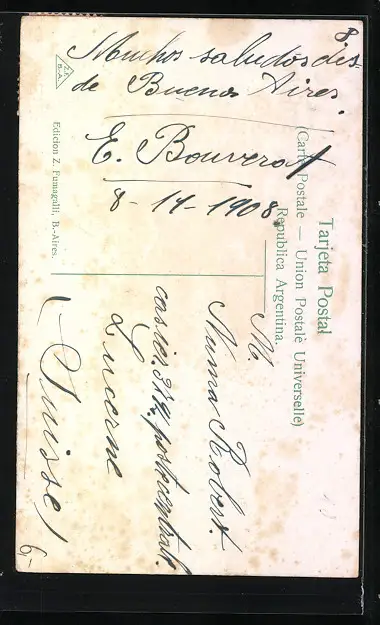 8
Muchos saludos dis-
de Buenos Aires.
E. Bouverat
8-11-1908.
Tarjeta Postal
(Carte Postale — Union Postale Universelle)
Republica Argentina.
Edicion Z. Fumagalli, B.-Aires.
Z.F.
B.-A.
M.
Numa Robert.
postcentrale
Lucerne
(Suisse)
6,-